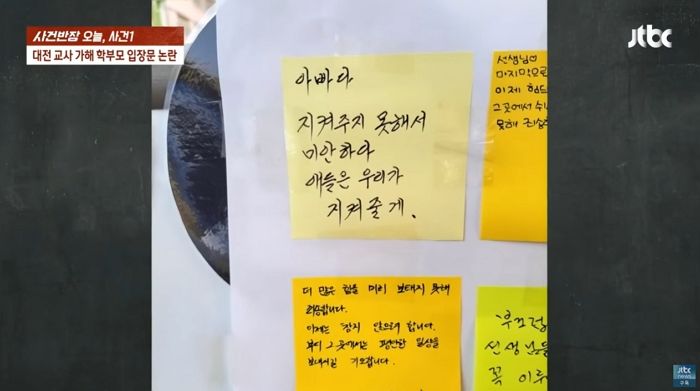 사건반장 오늘, 사건1
대전 교사 가해 학부모 입장문 논란
jtbc
아빠다
지켜주지 못해서
미안하다
애들은 우리가
지켜줄게.
선생님♡
마지막으로
이제 힘드
그곳에서 수
못해 죄송
더 많은 힘을 미리 보태지 못해
죄송합니다.
이제는 참지 않으려 합니다.
부디 그 곳에서는 평안한 일상을
보내시길 기도합니다.
선생님들
꼭 이루
jtbc
news
구독